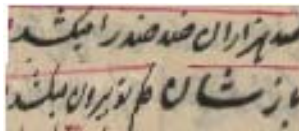 صد هزاران ضد ضد را میکشد
باز شان حکم تو بیرون میکشد